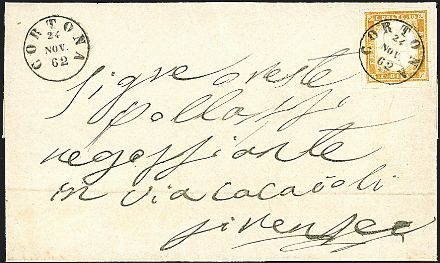 CORTONA
24
NOV.
62
C. POSTE 10
CORTONA
24
NOV.
62
Sigre oreste
pollassi
negossiante
in via cacaioli
firensee